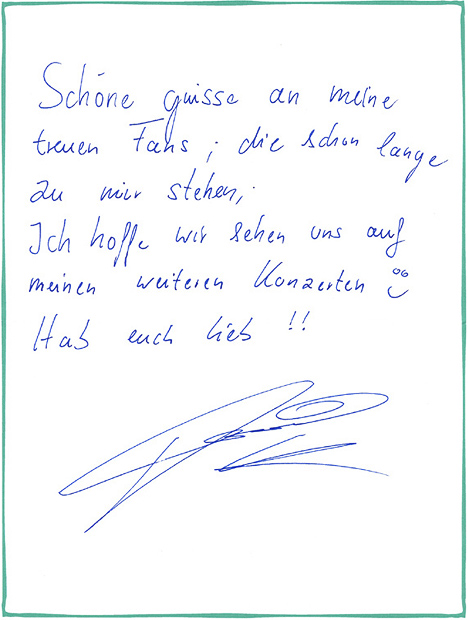 Schöne grüsse an meine
treuen Fans, die schon lange
zu mir stehen,
Ich hoffe wir sehen uns auf
meinen weiteren Konzerten
Hab euch lieb !!